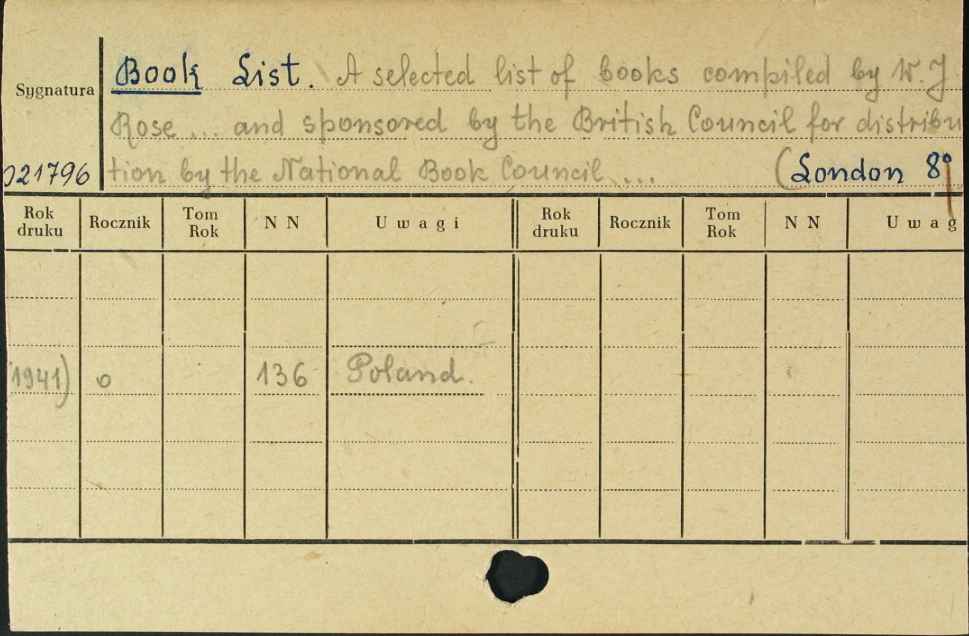 Book List. A selected list of books compiled by W. J.
Sygnatura
Rose ... and sponsored by the British Council for distribu
021796 tion by the National Book Council ... (London 8°
Rok druku Rocznik Tom Rok NN Uwagi Rok druku Rocznik Tom Rok NN Uwag
1941) o 136 Poland.